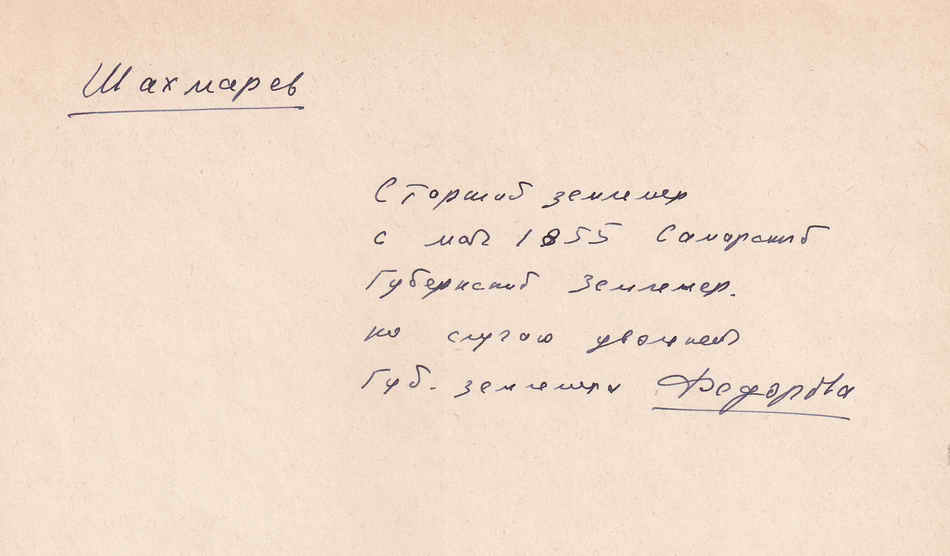 Шахмарев
Старший землемер
с мая 1855 Самарский
Губернский Землемер.
по случаю увольнен
Губ. землемера Федорова